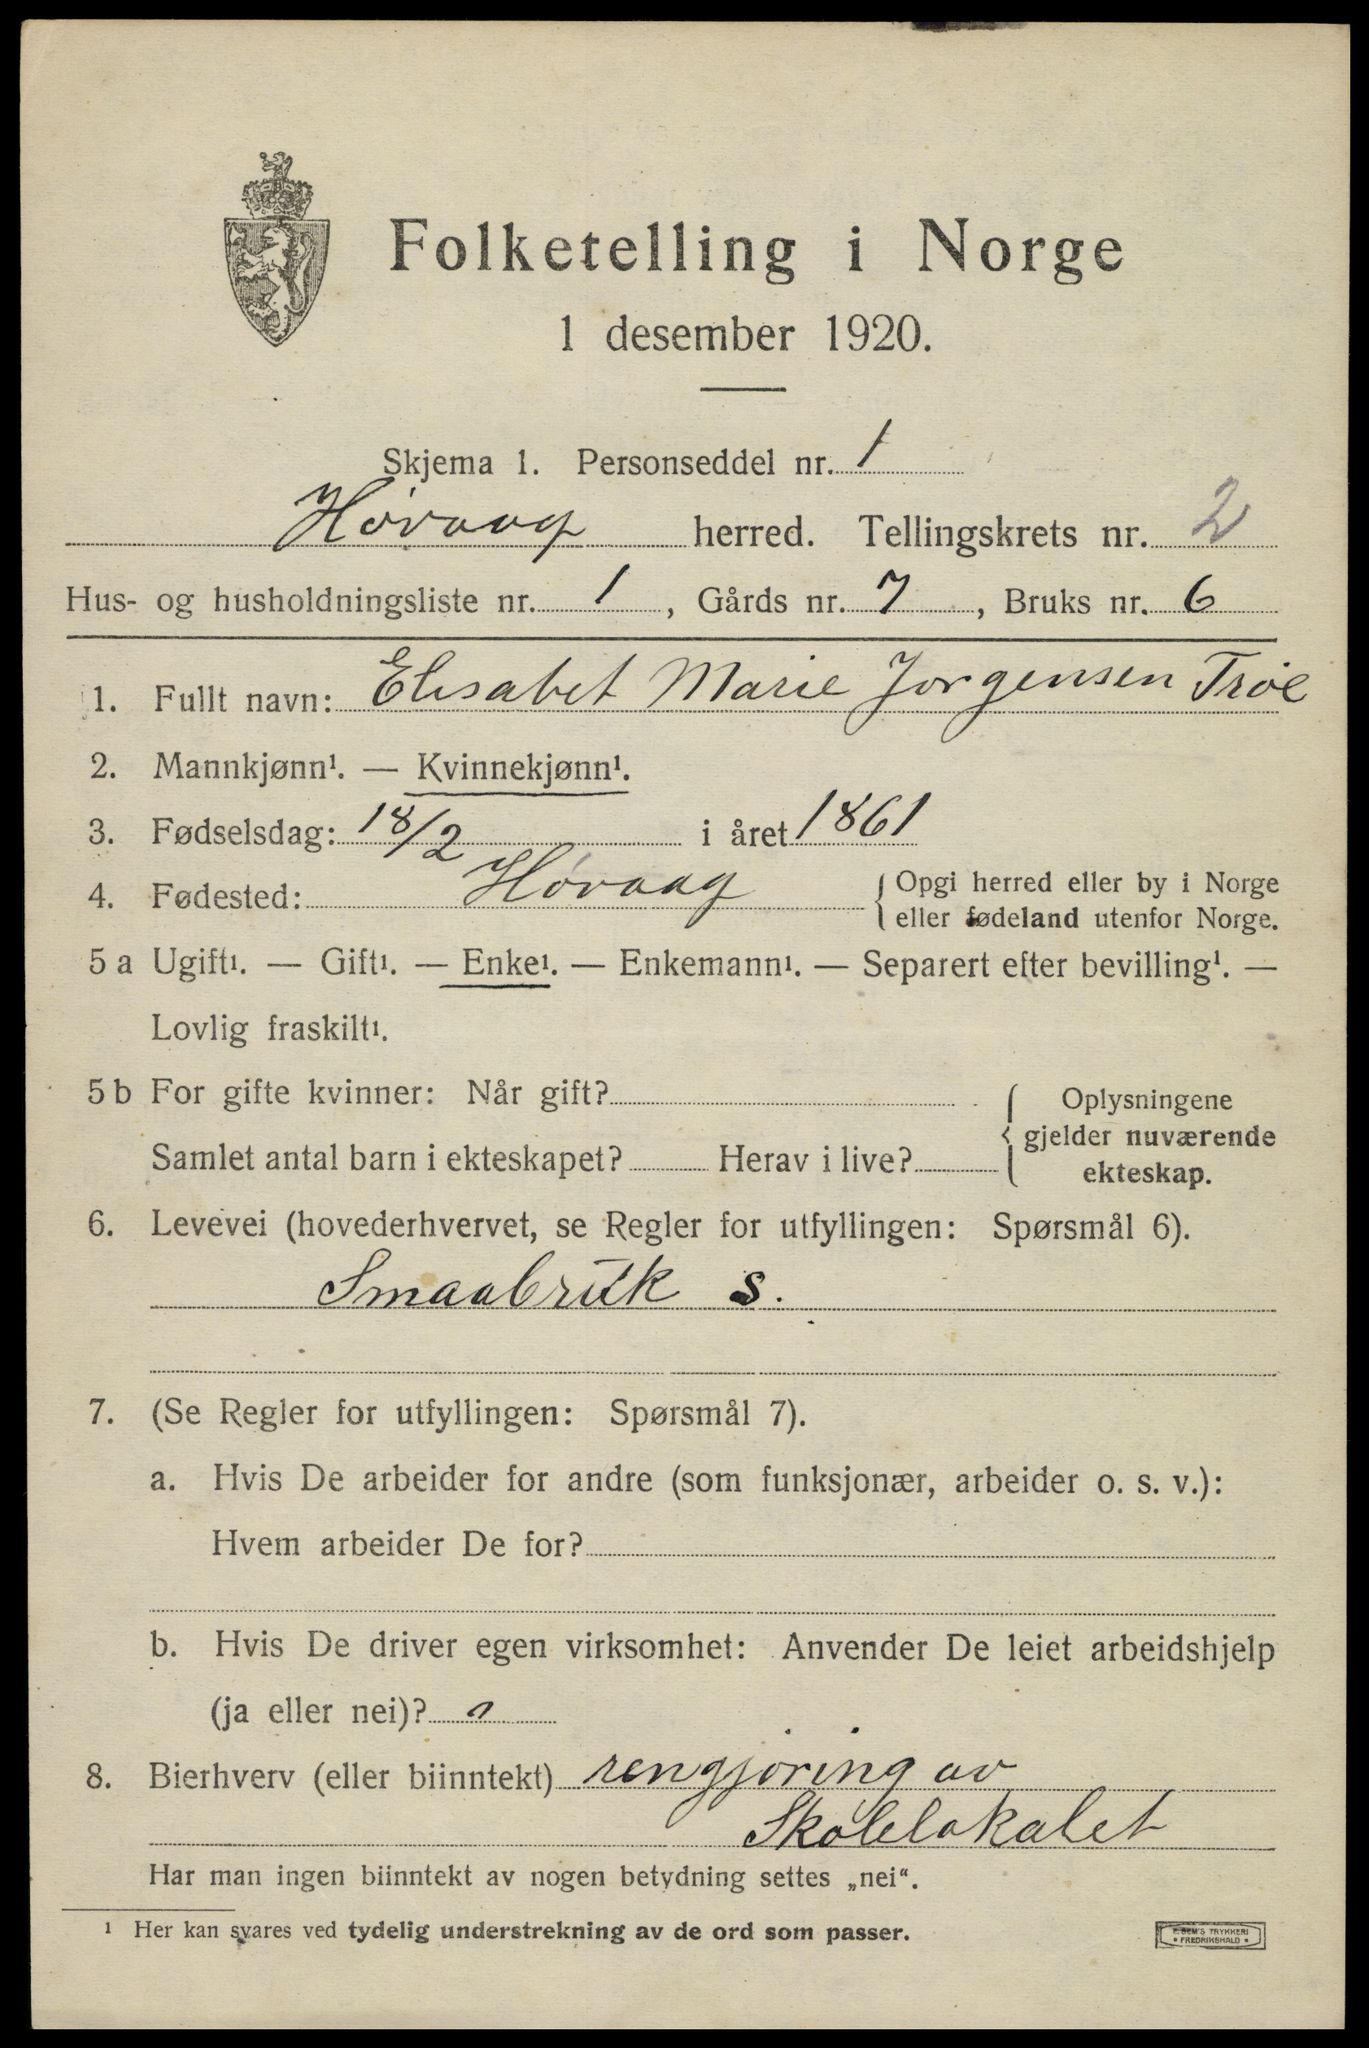 Folketelling i Norge
1 desember 1920.
Skjema 1. Personseddel nr. 1
Høvaag herred. Tellingskrets nr. 2
Hus- og husholdningsliste nr. 1, Gårds nr. 7, Bruks nr. 6
1. Fullt navn: Elisabet Marie Jørgensen Trøe
2. Mannkjønn¹. — Kvinnekjønn¹.
3. Fødselsdag: 18/2 i året 1861
4. Fødested: Høvaag { Opgi herred eller by i Norge
eller fødeland utenfor Norge.
5 a Ugift¹. — Gift¹. — Enke¹. — Enkemann¹. — Separert efter bevilling¹. —
Lovlig fraskilt¹.
5 b For gifte kvinner: Når gift? { Oplysningene
gjelder nuværende
Samlet antal barn i ekteskapet? Herav i live? ekteskap.
6. Levevei (hovederhvervet, se Regler for utfyllingen: Spørsmål 6).
Smaabruk s.
7. (Se Regler for utfyllingen: Spørsmål 7).
a. Hvis De arbeider for andre (som funksjonær, arbeider o. s. v.):
Hvem arbeider De for?
b. Hvis De driver egen virksomhet: Anvender De leiet arbeidshjelp
(ja eller nei)?
8. Bierhverv (eller biinntekt) rengjøring av
Skolelokalet
Har man ingen biinntekt av nogen betydning settes „nei“.
¹ Her kan svares ved tydelig understrekning av de ord som passer.
SEM'S TRYKKERI
• FREDRIKSHALD •